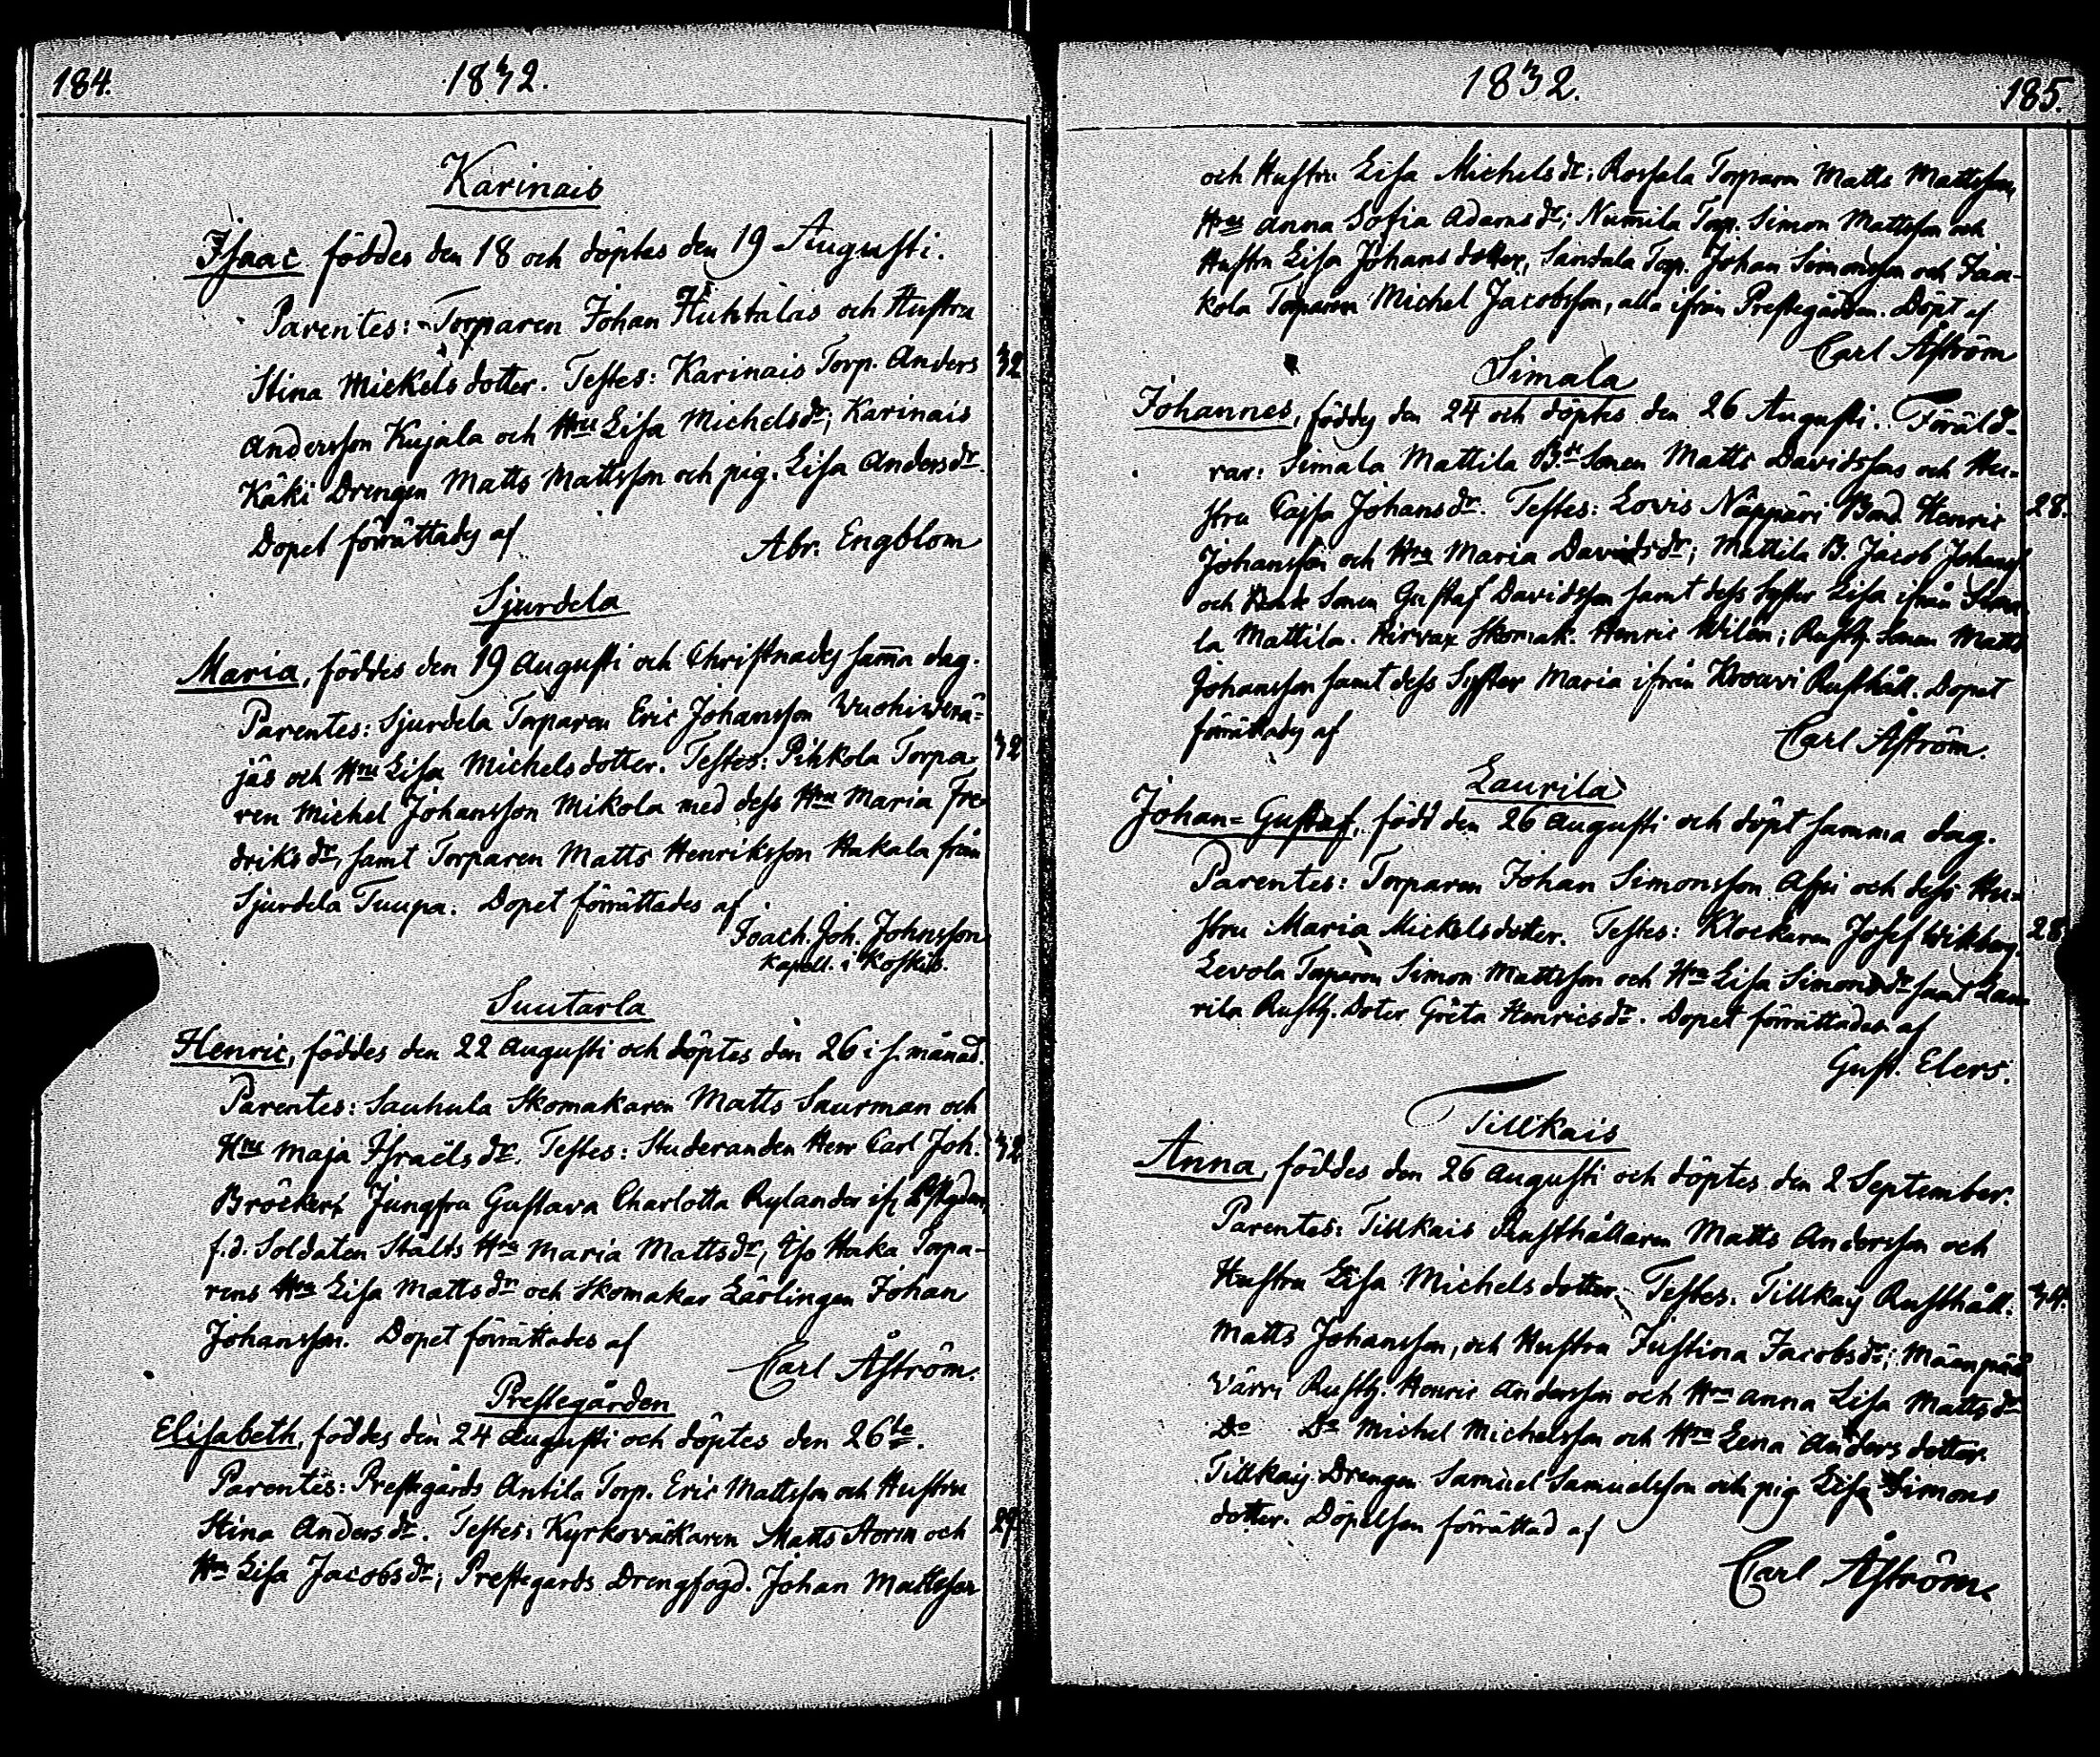 184.
1832.
Karinais
Isaac föddes den 18 och döptes den 19 Augusti.
Parentes: Torparen Johan Huhtalas och Hustru
Stina Mickelsdotter. Testes: Karinais Torp. Anders
32
Andersson Kujala och Hru Lisa Michelsdr; Karinais
Käki Drengen Matts Mattsson och pig. Lisa Andersdr.
Dopet förrättades af
Abr. Engblom
Sjurdela
Maria, föddes den 19 Augusti och Christnades samma dag.
Parentes: Sjurdela Torparen Eric Johansson Wuohiwenä-
jäs och Hru Lisa Michelsdotter. Testes: Pihkola Torpa-
32
ren Michel Johansson Mikola med dess Hru Maria Fre-
driksdr, samt Torparen Matts Henriksson Hakala från
Sjurdela Tuupa. Dopet förrättades af
Joach. Joh. Johnsson
Kapell. i Koskis.
Suutarla
Henric, föddes den 22 Augusti och döptes den 26 i s. månad.
Parentes: Sauhula Skomakaren Matts Saurman och
Hru Maja Israëlsdr. Testes: Studeranden Herr Carl Joh.
32
Bröcker, Jungfru Gustava Charlotta Rylander
f.d. Soldaten Stålts Hru Maria Mattsdr, Iso Haka Torpa-
rens Hru Lisa Mattsdr och Skomakar Lärlingen Johan
Johansson. Dopet förrättades af
Carl Åström.
Prestegården
Elisabeth, föddes den 24 Augusti och döptes den 26te.
Parentes: Prestegårds Antila Torp. Eric Mattsson och Hustru
Stina Andersdr. Testes: Kyrkoväktaren Matts Storm och
29
Hru Lisa Jacobsdr; Prestegårds Drengfogd. Johan Mattsson
1832.
185.
och Hustru Lisa Michelsdr; Rossala Torparen Matts Mattsson,
Hrus Anna Sofia Adamsdr; Nummila Torp. Simon Mattsson och
Hustru Lisa Johansdotter, Sandala Torp. Johan Simonsson och Jaa-
kola Torparen Michel Jacobsson, alla ifrån Prestegården. Döpt af
Carl Åström
Simala
Johannes, föddes den 24 och döptes den 26 Augusti. Föräld-
rar: Simala Mattila B.de Sonen Matts Davidsson och Hu-
stru Cajsa Johansdr. Testes: Lovis Näppäri Bond. Henric
28.
Johansson och Hru Maria Davidsdr; Mattila B. Jacob Johanss.
och Bonde Sonen Gustaf Davidsson samt dess Syster Lisa ifrån Sima-
la Mattila. Hirvax Skomak. Henric Wilén; Rusth. Sonen Matts
Johansson samt dess Syster Maria ifrån Krouvi Rusthåll. Dopet
förrättades af
Carl Åström.
Laurila
Johan-Gustaf, född den 26 Augusti och döpt samma dag.
Parentes: Torparen Johan Simonsson Assi och dess Hu-
stru Maria Mickelsdotter. Testes: Klockaren Josef Wikberg.
28
Levola Torparen Simon Mattsson och Hru Lisa Simonsdr samt Lau-
rila Rusth. Doter Greta Henricsdr. Dopet förrättades af
Gust. Elers.
Tillkais
Anna, föddes den 26 Augusti och döptes den 2 September.
Parentes: Tillkais Rusthållaren Matts Andersson och
Hustru Lisa Michelsdotter. Testes: Tillkais Rusthåll.
34.
Matts Johansson, och Hustru Justina Jacobsdr; Määnpää
Värri Rusth. Henric Andersson och Hru Anna Lisa Mattsdr
Do Do Michel Michelsson och Hru Lena Andersdotter.
Tillkais Drengen Samuel Samuelsson och pig Lisa Simons
dotter. Döpelsen förrättad af
Carl Åström.